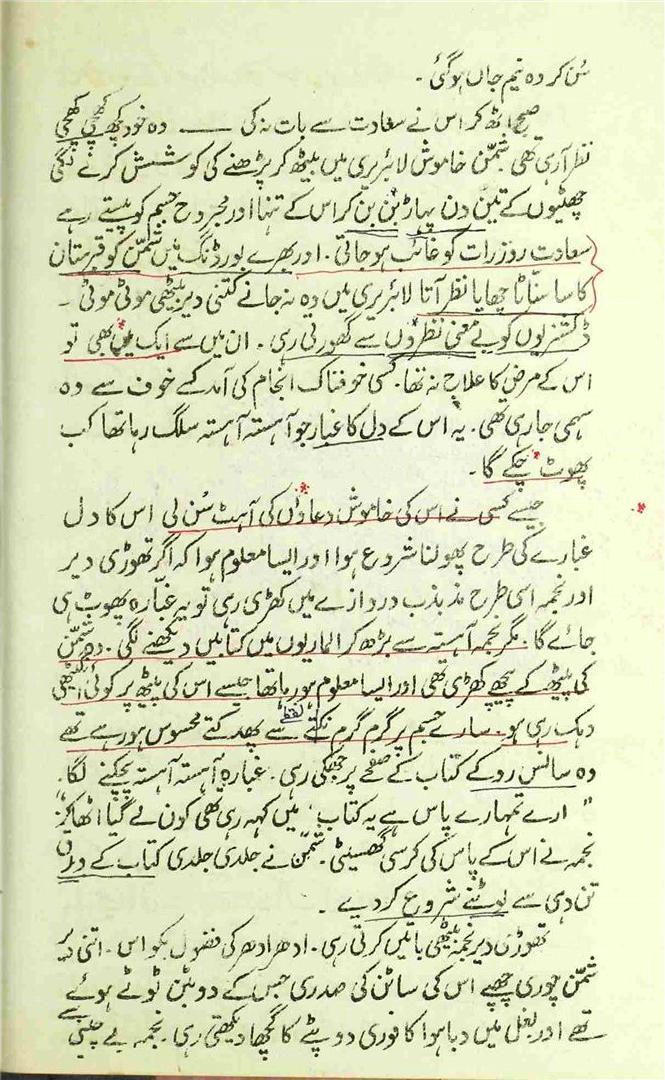 سُن کر وہ نیم جاں ہوگئی۔
صبح اٹھ کر اس نے سعادت سے بات نہ کی ـــ وہ خود کچھ کھچی کھچی
نظر آرہی تھی شمّن خاموش لائبریری میں بیٹھ کر پڑھنے کی کوشش کرنے لگی
چھٹیوں کے تین دن پہاڑ بن بن کر اس کے تنہا اور مجروح جسم کو پیستے رہے
سعادت روز رات کو غائب ہوجاتی۔ اور بھرے بورڈنگ میں شمّن کو قبرستان
کا سا سنّاٹا چھایا نظر آتا لائبریری میں وہ نہ جانے کتنی دیر بیٹھی موٹی موٹی۔
ڈکشنریوں کو بے معنی نظروں سے گھورتی رہی۔ ان میں سے ایک میں بھی تو
اس کے مرض کا علاج نہ تھا۔ کسی خوفناک انجام کی آمد کے خوف سے وہ
سہمی جارہی تھی۔ یہ اس کے دل کا غبار جو آہستہ آہستہ سلگ رہا تھا کب
پھوٹ چکے گا۔
جیسے کسی نے اس کی خاموش دعاؤں کی آہٹ سُن لی اس کا دل
غبارے کی طرح پھولنا شروع ہوا اور ایسا معلوم ہوا کہ اگر تھوڑی دیر
اور نجمہ اسی طرح مذبذب دروازے میں کھڑی رہی تو یہ غبّارہ پھوٹ ہی
جائے گا۔ مگر نجمہ آہستہ سے بڑھ کر الماریوں میں کتابیں دیکھنے لگی۔ وہ شمّن
کی پیٹھ کے پیچھے کھڑی تھی اور ایسا معلوم ہورہا تھا جیسے اس کی پیٹھ پر کوئی انگیٹھی
دہک رہی ہو۔ سارے جسم پر گرم گرم نکتے نقطے سے پھدکتے محسوس ہورہے تھے
وہ سانس روکے کتاب کے صفحے پر جھکی رہی۔ غبارہ آہستہ آہستہ پچکنے لگا۔
"ارے تمہارے پاس ہے یہ کتاب، میں کہہ رہی تھی کون لے گیا اٹھا کر"
نجمہ نے اس کے پاس کی کرسی گھسیٹی۔ شمّن نے جلدی جلدی کتاب کے ورق
تن دہی سے لوٹنے شروع کردیے۔
تھوڑی دیر نجمہ بیٹھی باتیں کرتی رہی۔ ادھر ادھر کی فضول بکواس۔ اتنی دیر
شمّن چوری چھپے اس کی ساٹن کی صدری جس کے دو بٹن ٹوٹے ہوئے
تھے اور بغل میں دبا ہوا کافوری دوپٹے کا گچھا دیکھتی رہی۔ نجمہ بے چینی سے